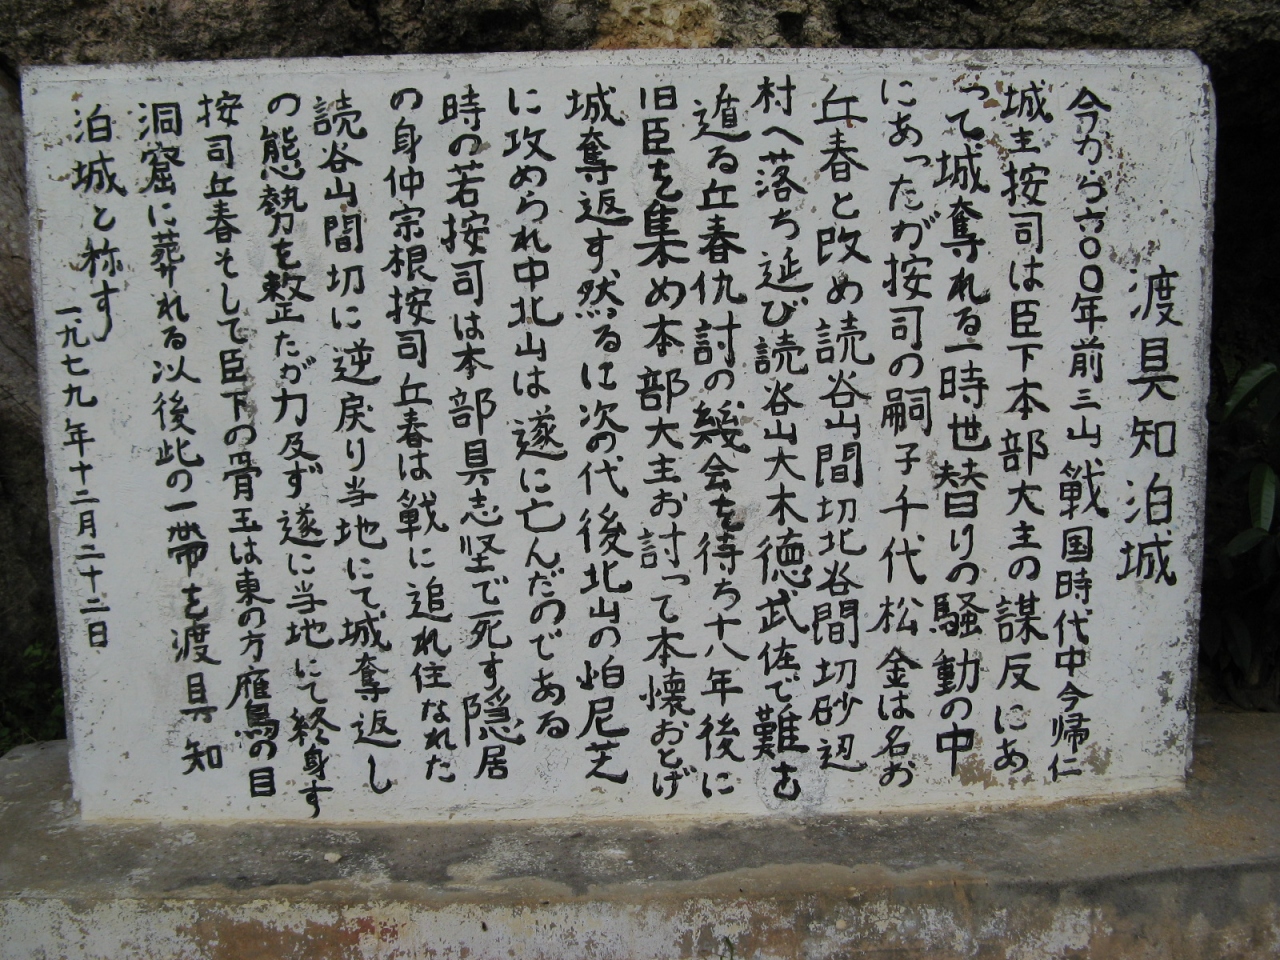 渡具知泊城
今から六〇〇年前三山戦国時代中今帰仁
城主按司は臣下本部大主の謀反にあ
って城奪れる一時世替りの騒動の中
にあったが按司の嗣子千代松金は名お
丘春と改め読谷山間切北谷間切砂辺
村へ落ち延び読谷山大木徳武佐で難を
遁る丘春仇討の機会を待ち十八年後に
旧臣を集め本部大主お討って本懐おとげ
城奪返す然るに次の代後北山の怕尼芝
に攻められ中北山は遂に亡んだのである
時の若按司は本部具志堅で死す隠居
の身仲宗根按司丘春は戦に追れ住なれた
読谷山間切に逆戻り当地にて城奪返し
の態勢を整たが力及ず遂に当地にて終身す
按司丘春そして臣下の骨玉は東の方雁鳥の目
洞窟に葬れる以後此の一帯を渡具知
泊城と称す
一九七九年十二月二十二日